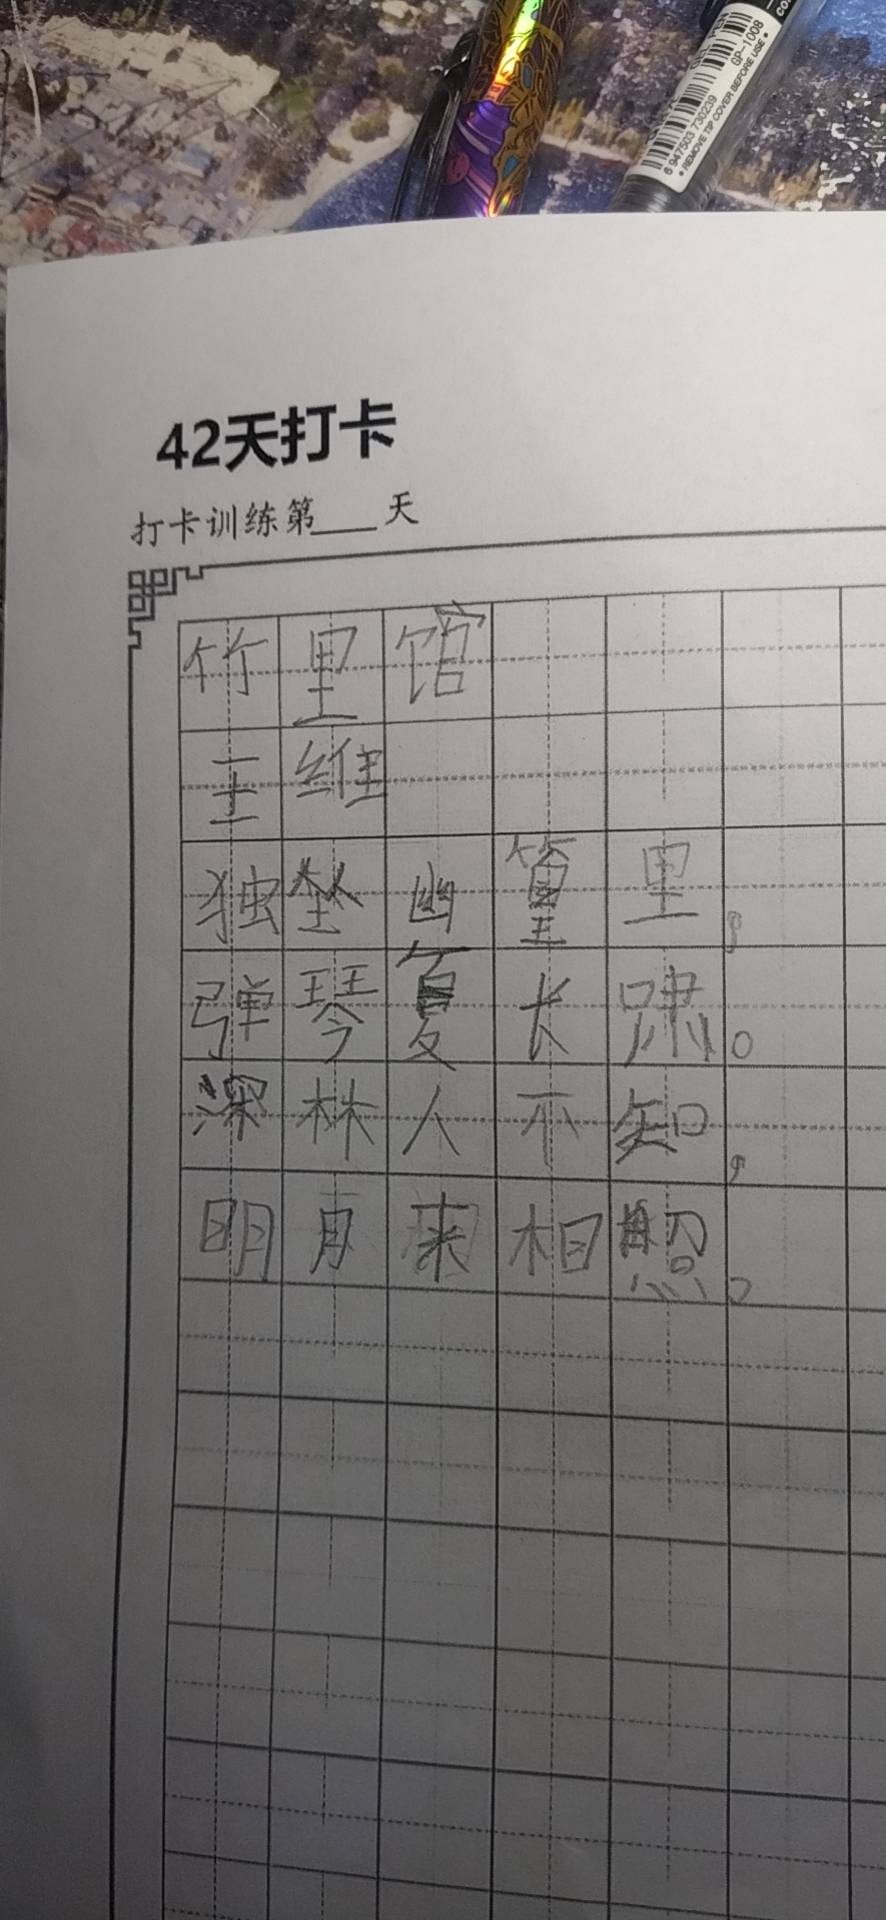 6 947503 730239
GP-1008
• REMOVE TIP COVER BEFORE USE •
42天打卡
打卡训练第___天
竹里馆
王维
独坐幽篁里,
弹琴复长啸。
深林人不知,
明月来相照。